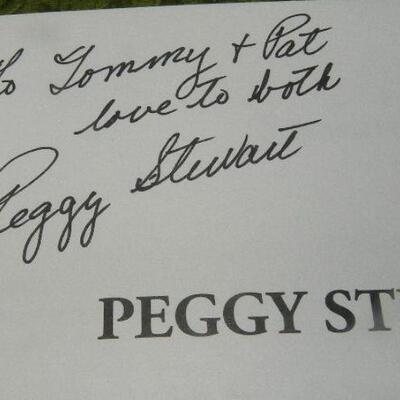 To Tommy + Pat
love to both
Peggy Stewart
PEGGY ST